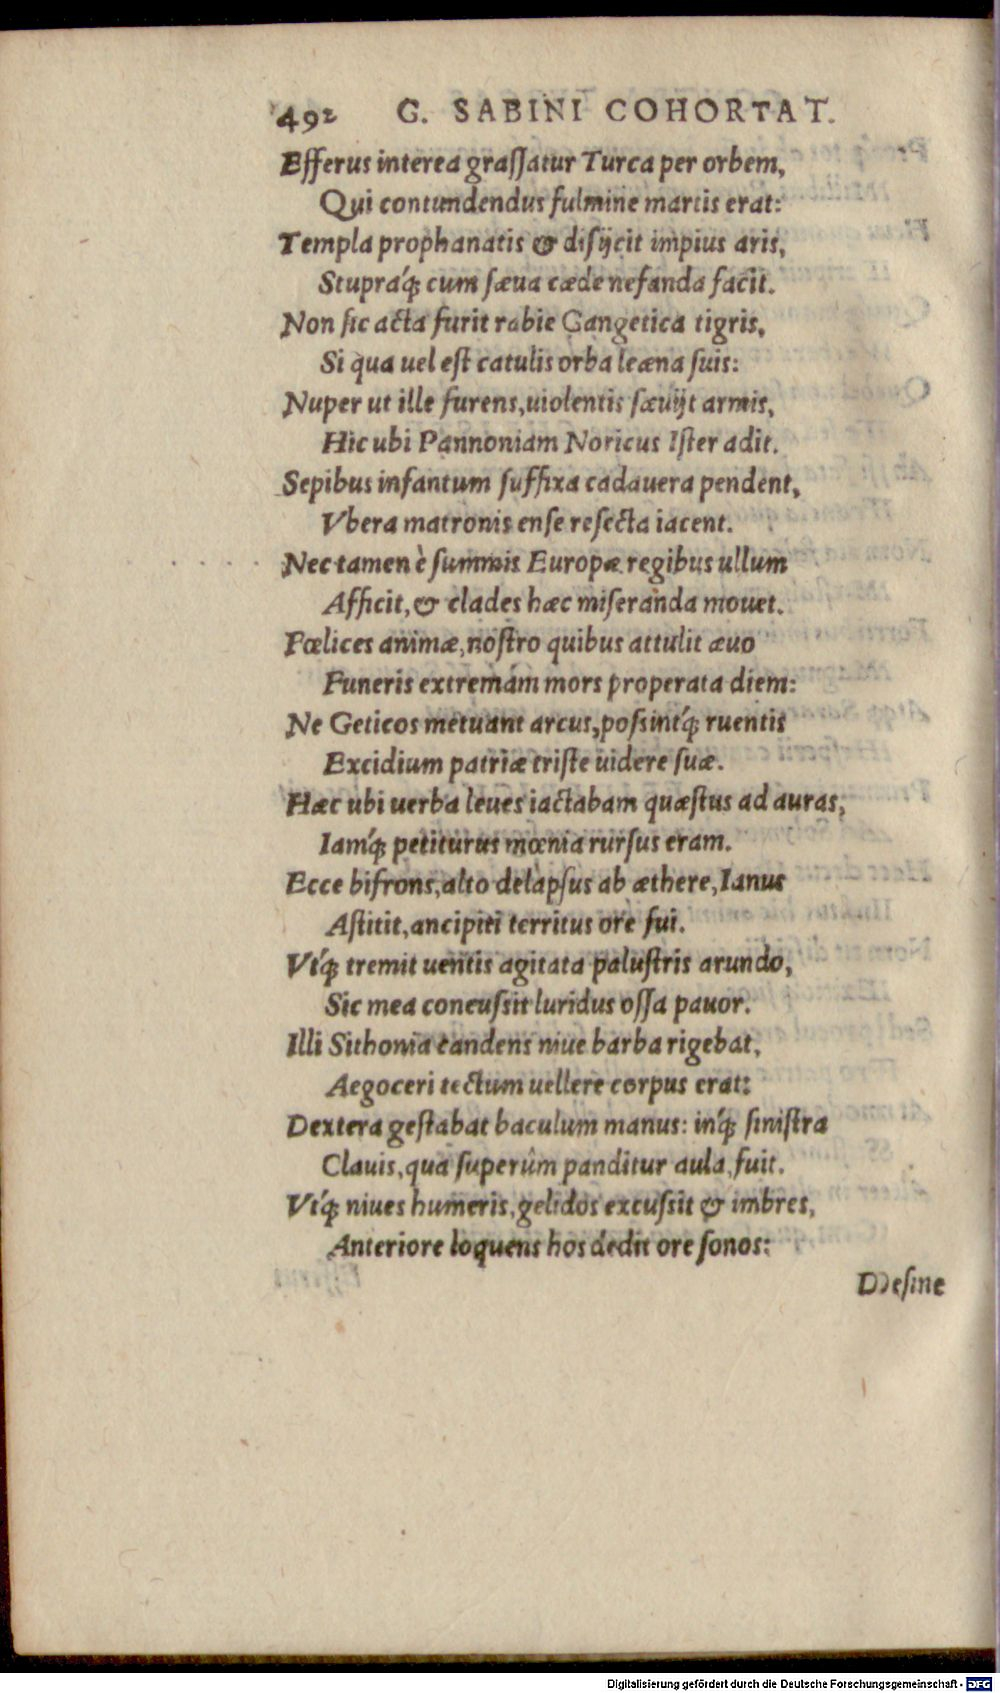 492 G. SABINI COHORTAT.
Efferus interea graſſatur Turca per orbem,
Qui contundendus fulmine martis erat:
Templa prophanatis & diſijcit impius aris,
Stupraq́ꝫ cum ſæua cæde nefanda facit.
Non ſic acta furit rabie Gangetica tigris,
Si qua uel eſt catulis orba leæna ſuis:
Nuper ut ille furens, uiolentis ſæuijt armis,
Hic ubi Pannoniam Noricus Iſter adit.
Sepibus infantum ſuffixa cadauera pendent,
Vbera matronis enſe reſecta iacent.
Nec tamen è ſummis Europæ regibus ullum
Afficit, & clades hæc miſeranda mouet.
Fœlices animæ, noſtro quibus attulit æuo
Funeris extremám mors properata diem:
Ne Geticos metuant arcus, poſsintq́ꝫ ruentis
Excidium patriæ triſte uidere ſuæ.
Hæc ubi uerba leues iactabam quæſtus ad auras,
Iamq́ꝫ petiturus mœnia rurſus eram.
Ecce bifrons, alto delapſus ab æthere, Ianus
Aſtitit, ancipiti territus ore fui.
Vtq́ꝫ tremit uentis agitata paluſtris arundo,
Sic mea concuſsit luridus oſſa pauor.
Illi Sithonia candens niue barba rigebat,
Aegoceri tectum uellere corpus erat:
Dextera geſtabat baculum manus: inq́ꝫ ſiniſtra
Clauis, qua ſuperûm panditur aula, fuit.
Vtq́ꝫ niues humeris, gelidos excuſsit & imbres,
Anteriore loquens hos dedit ore ſonos:
Deſine
Digitalisierung gefördert durch die Deutsche Forschungsgemeinschaft - DFG